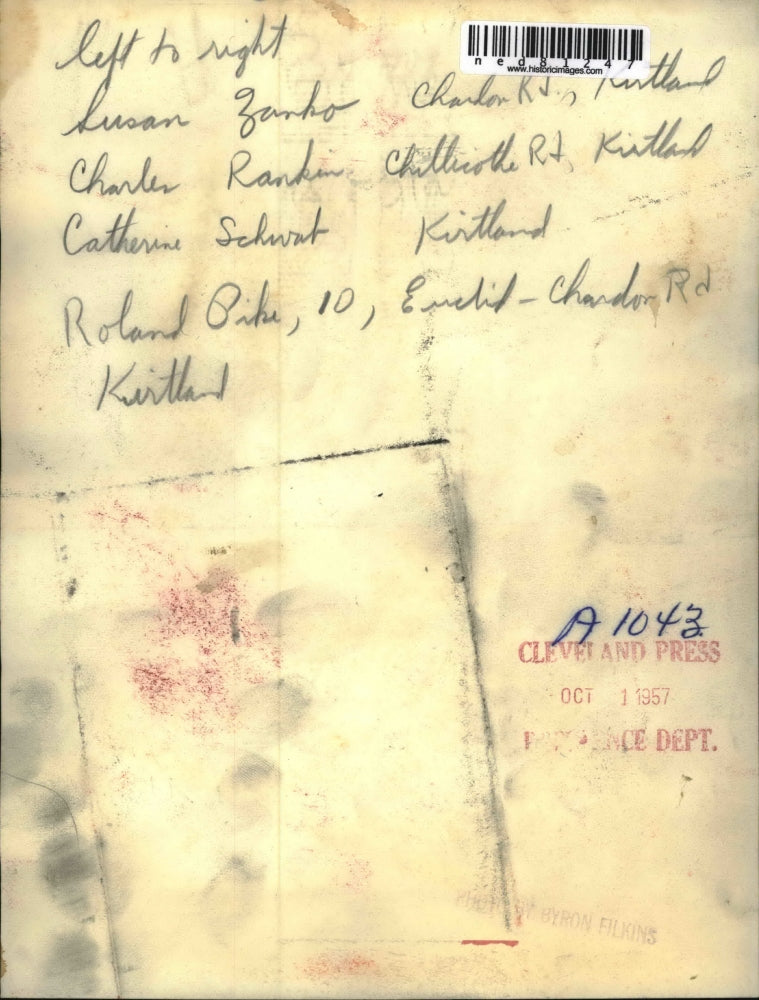 left to right
ned81247
www.historicimages.com
Susan Zanko Chardon Rd., Kirtland
Charles Rankin Chillicothe Rd, Kirtland
Catherine Schwab Kirtland
Roland Pike, 10, Euclid - Chardon Rd
Kirtland
A 1043
CLEVELAND PRESS
OCT 1 1957
DEPT.
PHOTO BY BYRON FILKINS